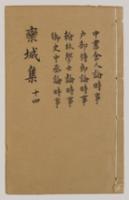 欒城集 十四
中書舍人論時事
户部侍郎論時事
翰林學士論時事
御史中丞論時事